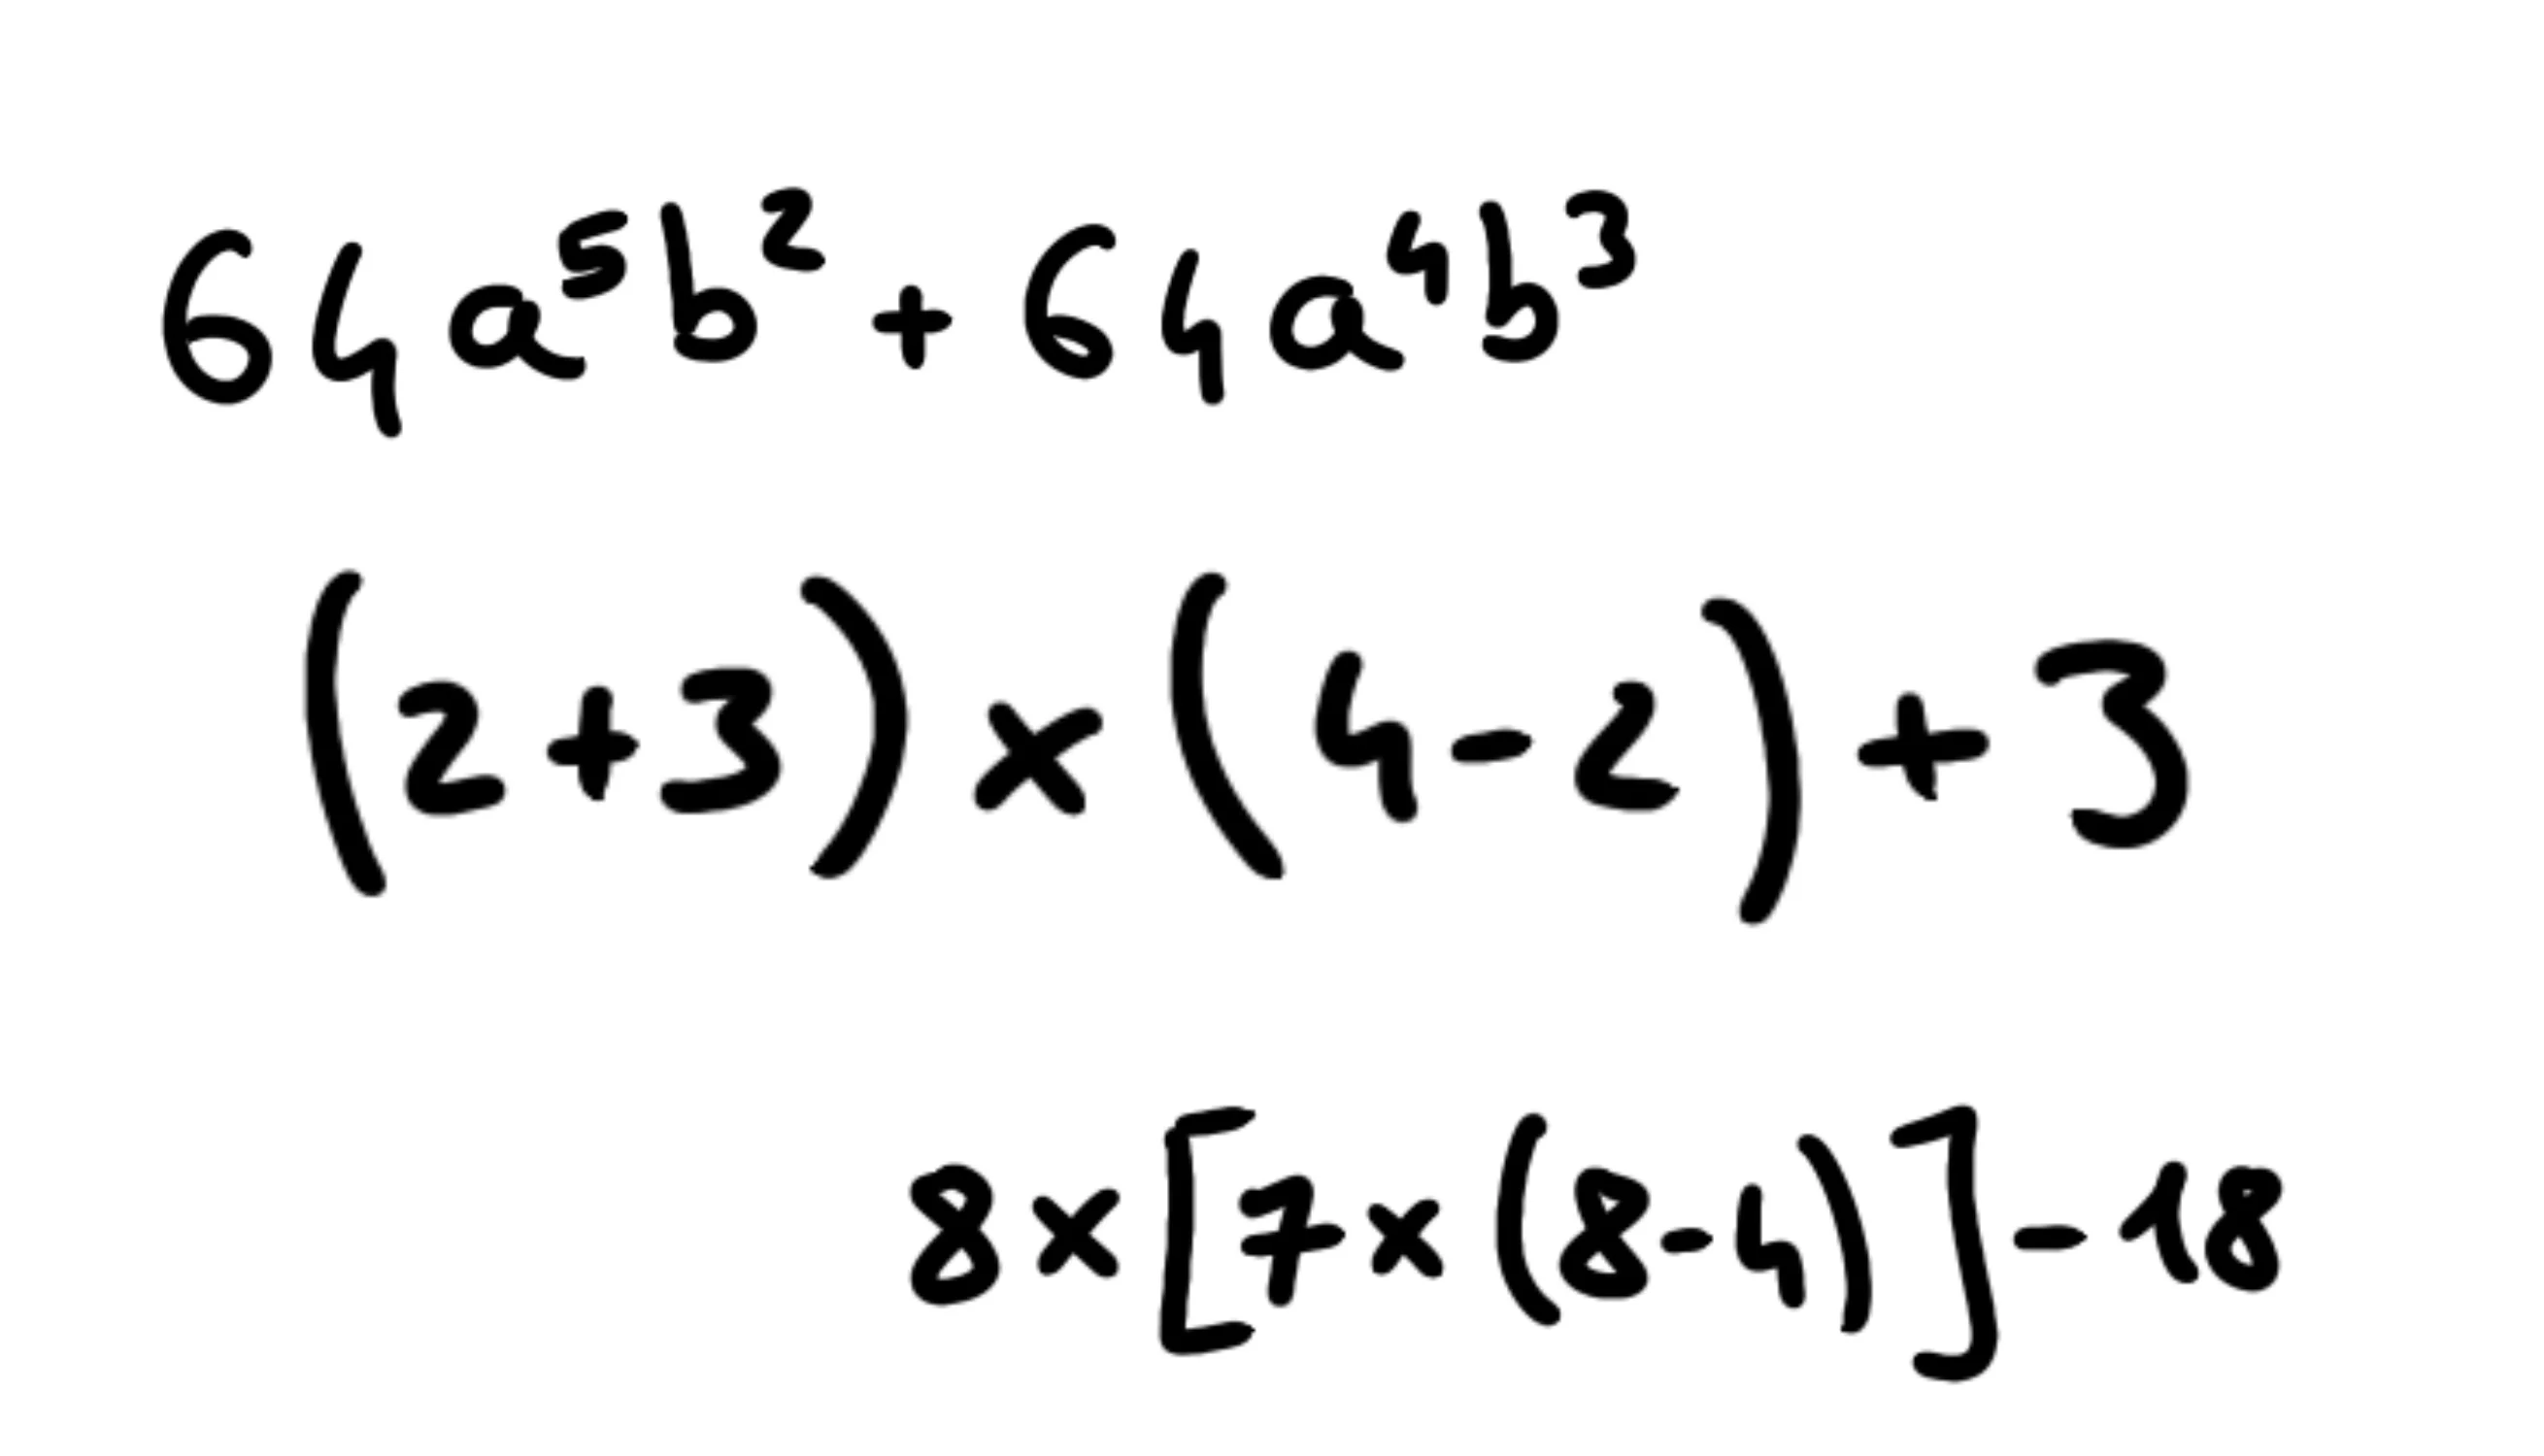 64a⁵b² + 64a⁴b³
(2+3) × (4-2) + 3
8×[7×(8-4)]-18